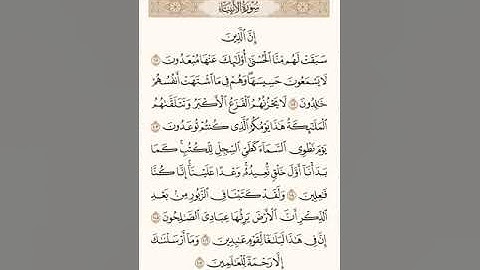 سُورَةُ الأَنْبِيَاءِ
إِنَّ ٱلَّذِينَ
سَبَقَتْ لَهُم مِّنَّا ٱلْحُسْنَىٰٓ أُو۟لَٰٓئِكَ عَنْهَا مُبْعَدُونَ ۝١٠١
لَا يَسْمَعُونَ حَسِيسَهَا وَهُمْ فِى مَا ٱشْتَهَتْ أَنفُسُهُمْ
خَٰلِدُونَ ۝١٠٢ لَا يَحْزُنُهُمُ ٱلْفَزَعُ ٱلْأَكْبَرُ وَتَتَلَقَّىٰهُمُ
ٱلْمَلَٰٓئِكَةُ هَٰذَا يَوْمُكُمُ ٱلَّذِى كُنتُمْ تُوعَدُونَ ۝١٠٣
يَوْمَ نَطْوِى ٱلسَّمَآءَ كَطَىِّ ٱلسِّجِلِّ لِلْكُتُبِ كَمَا
بَدَأْنَآ أَوَّلَ خَلْقٍ نُّعِيدُهُۥ وَعْدًا عَلَيْنَآ إِنَّا كُنَّا
فَٰعِلِينَ ۝١٠٤ وَلَقَدْ كَتَبْنَا فِى ٱلزَّبُورِ مِنۢ بَعْدِ
ٱلذِّكْرِ أَنَّ ٱلْأَرْضَ يَرِثُهَا عِبَادِىَ ٱلصَّٰلِحُونَ ۝١٠٥
إِنَّ فِى هَٰذَا لَبَلَٰغًا لِّقَوْمٍ عَٰبِدِينَ ۝١٠٦ وَمَآ أَرْسَلْنَٰكَ
إِلَّا رَحْمَةً لِّلْعَٰلَمِينَ ۝١٠٧